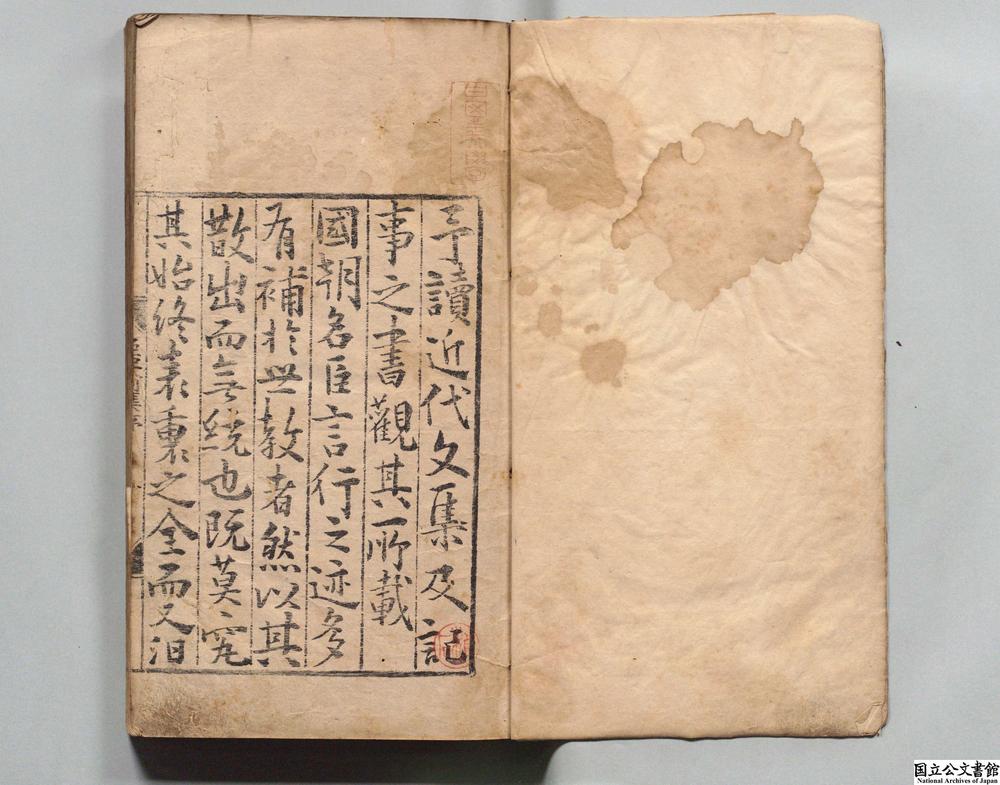 予讀近代文集及記
事之書觀其所載
國朝名臣言行之迹多
有補於世教者然以其
散出而無統也既莫究
其始終表裏之全而又汩
国立公文書館
National Archives of Japan